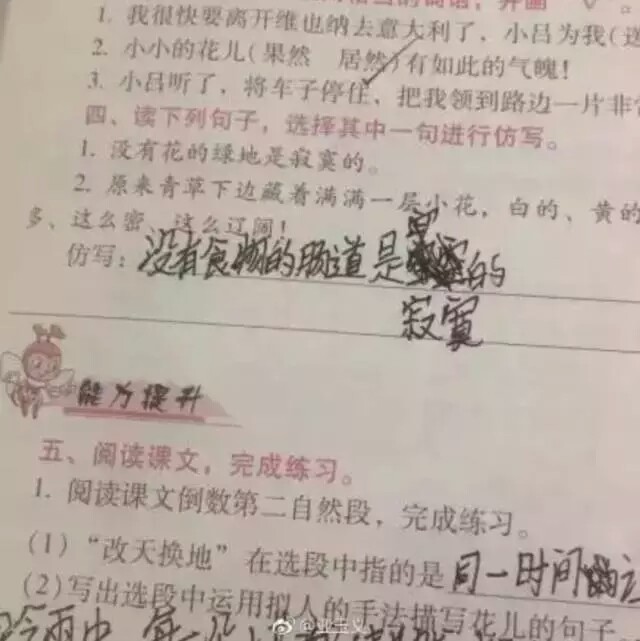 1. 我很快要离开维也纳去意大利了，小吕为我(送
2. 小小的花儿(果然 居然)有如此的气魄！
3. 小吕听了，将车子停住，把我领到路边一片非常
四、读下列句子，选择其中一句进行仿写。
1. 没有花的绿地是寂寞的。
2. 原来青草下边藏着满满一层小花，白的、黄的
多、这么密、这么辽阔！
仿写：没有食物的肠道是 的
寂寞
能力提升
五、阅读课文，完成练习。
1. 阅读课文倒数第二自然段，完成练习。
(1)“改天换地”在选段中指的是同一时间
(2)写出选段中运用拟人的手法描写花儿的句子
冷雨中